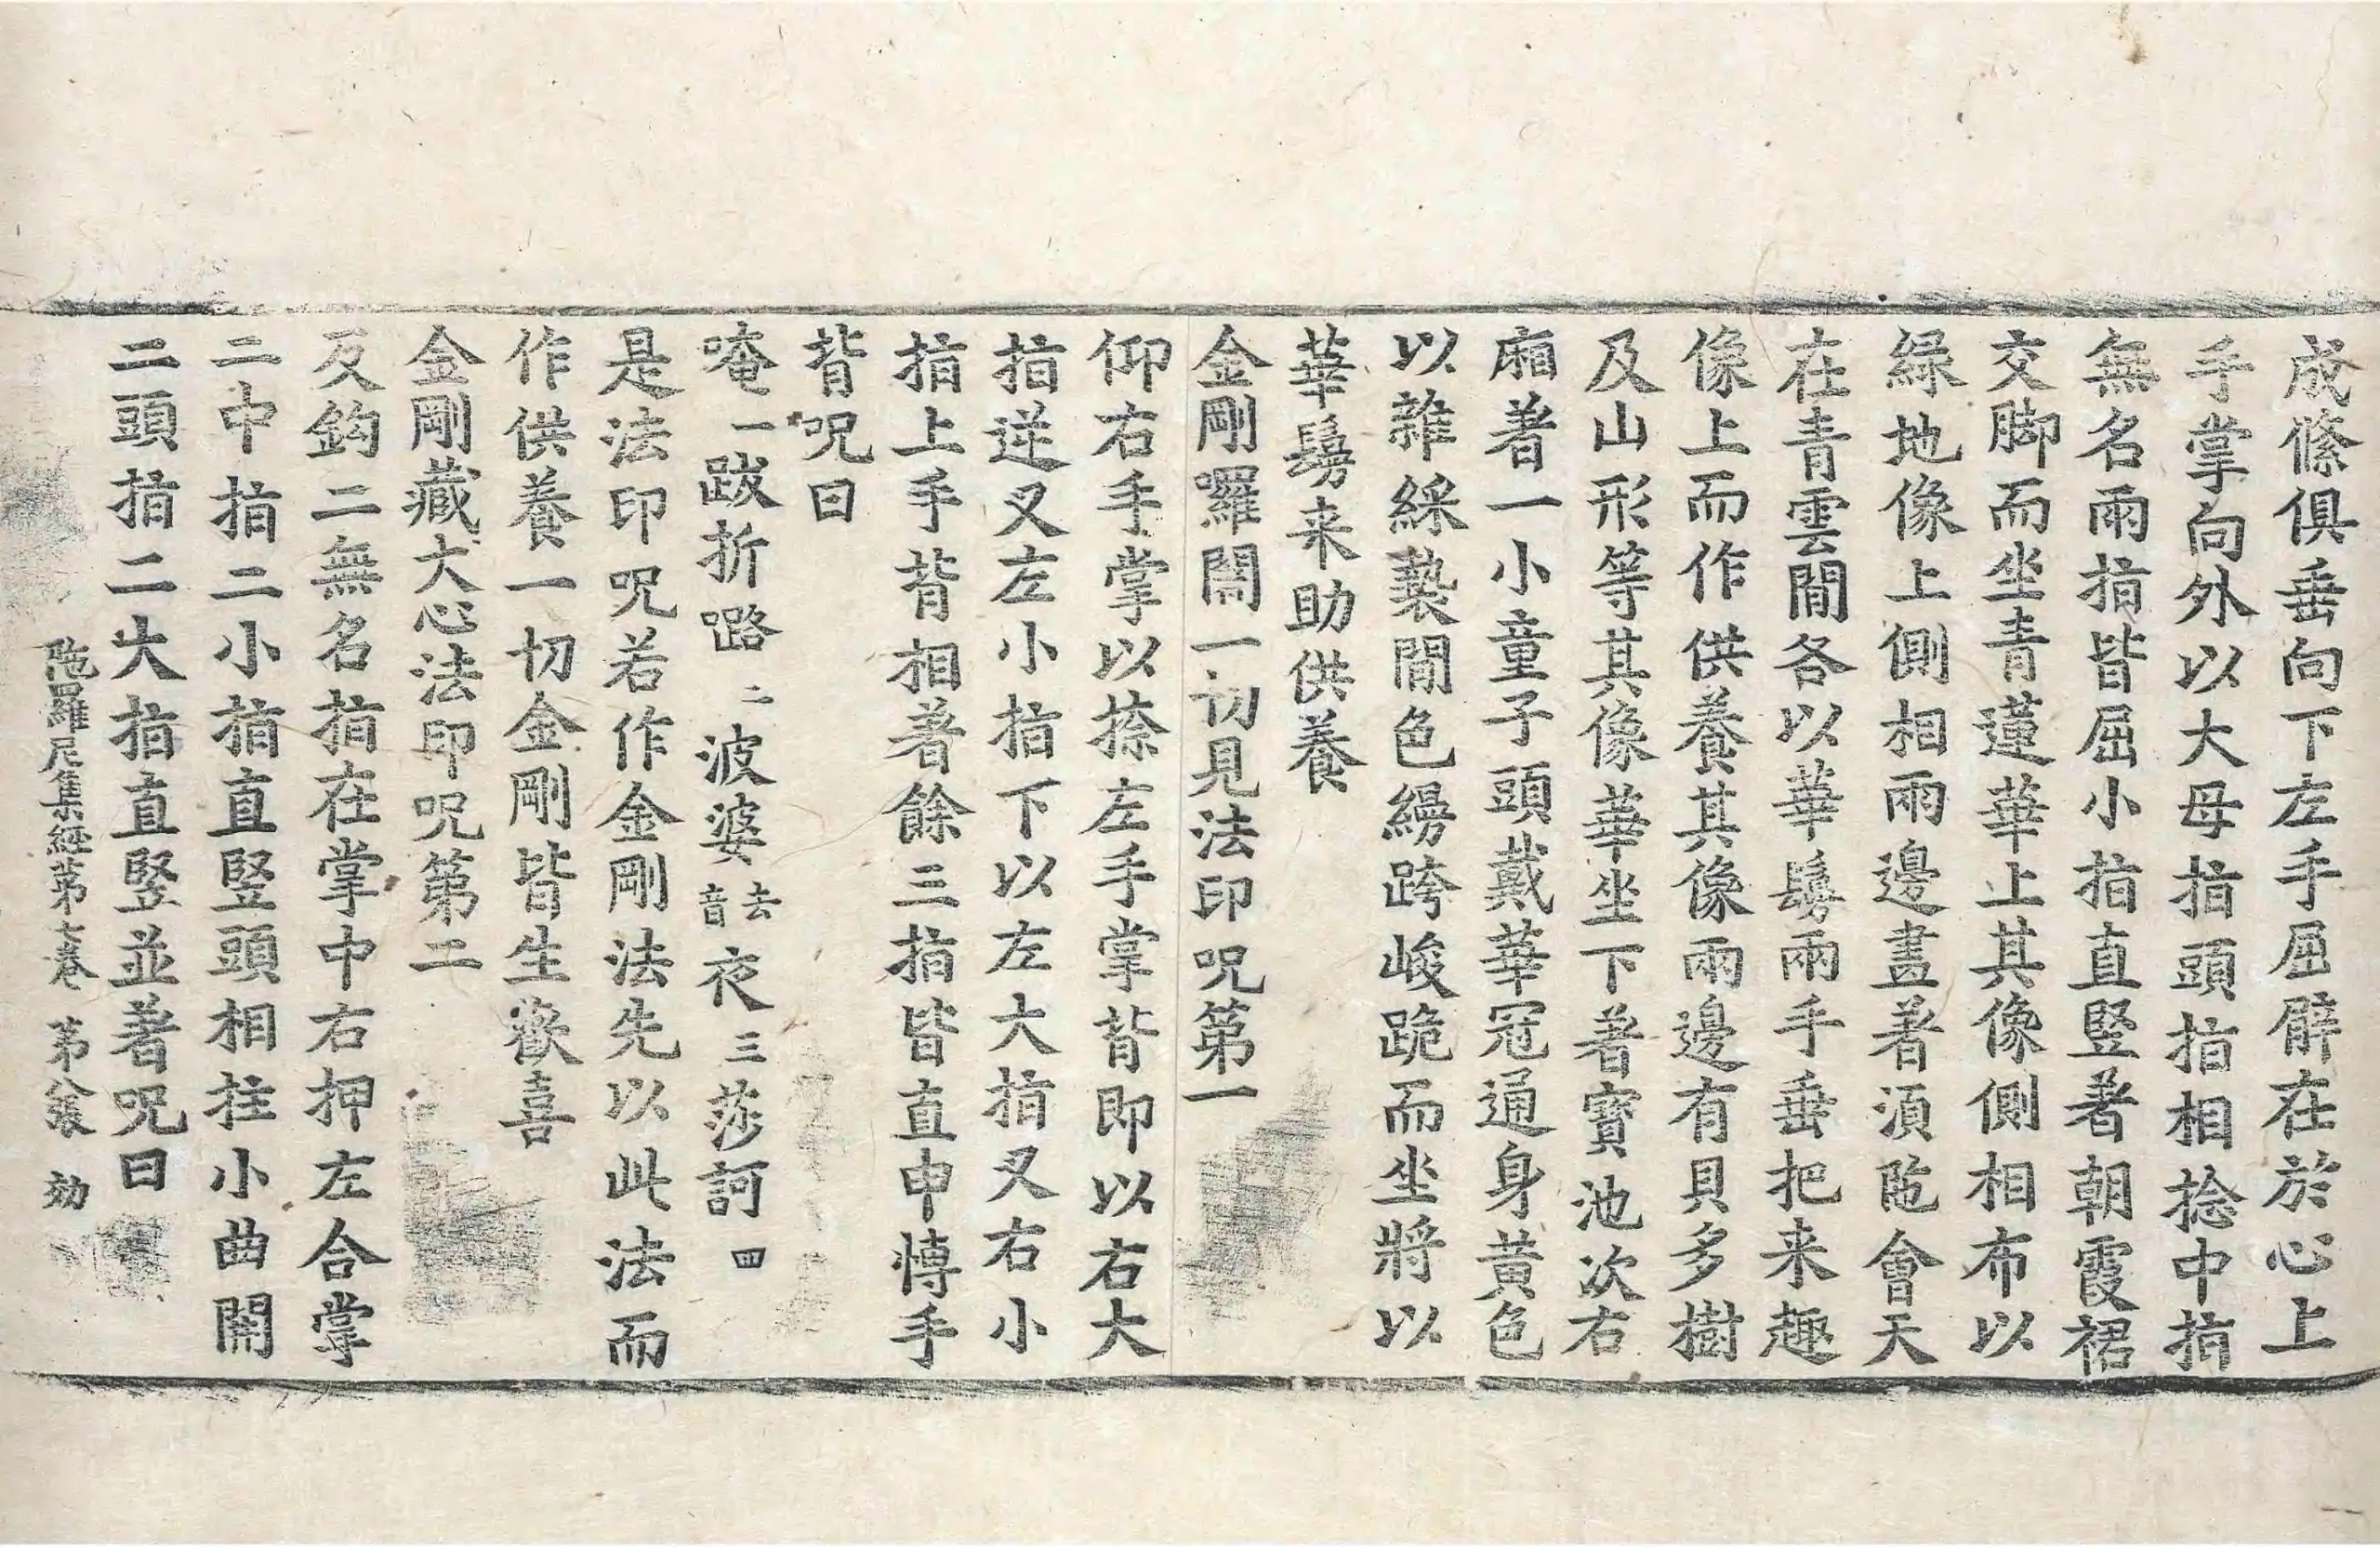 成絛俱垂向下左手屈臂在於心上
手掌向外以大母指頭指相捻中指
無名兩指皆屈小指直竪著朝霞裙
交脚而坐青蓮華上其像側相布以
緑地像上側相兩邊畫著湏陁會天
在青雲間各以華鬘兩手垂把来趣
像上而作供養其像兩邊有貝多樹
及山形等其像華坐下著寶池次右
廂著一小童子頭戴華冠通身黃色
以雜綵褺間色縵跨峻跪而坐將以
華鬘来助供養
金剛囉闍一切見法印呪第一
仰右手掌以捺左手掌背即以右大
指逆叉左小指下以左大指叉右小
指上手背相著餘三指皆直申慱手
背呪曰
唵一跋折𡀔二波婆去音夜三莎訶四
是法印呪若作金剛法先以此法而
作供養一切金剛皆生歡喜
金剛藏大心法印呪第二
反鈎二無名指在掌中右押左合掌
二中指二小指直竪頭相拄小曲開
二頭指二大指直竪並著呪曰
陁羅尼集經第七卷 第八張 効